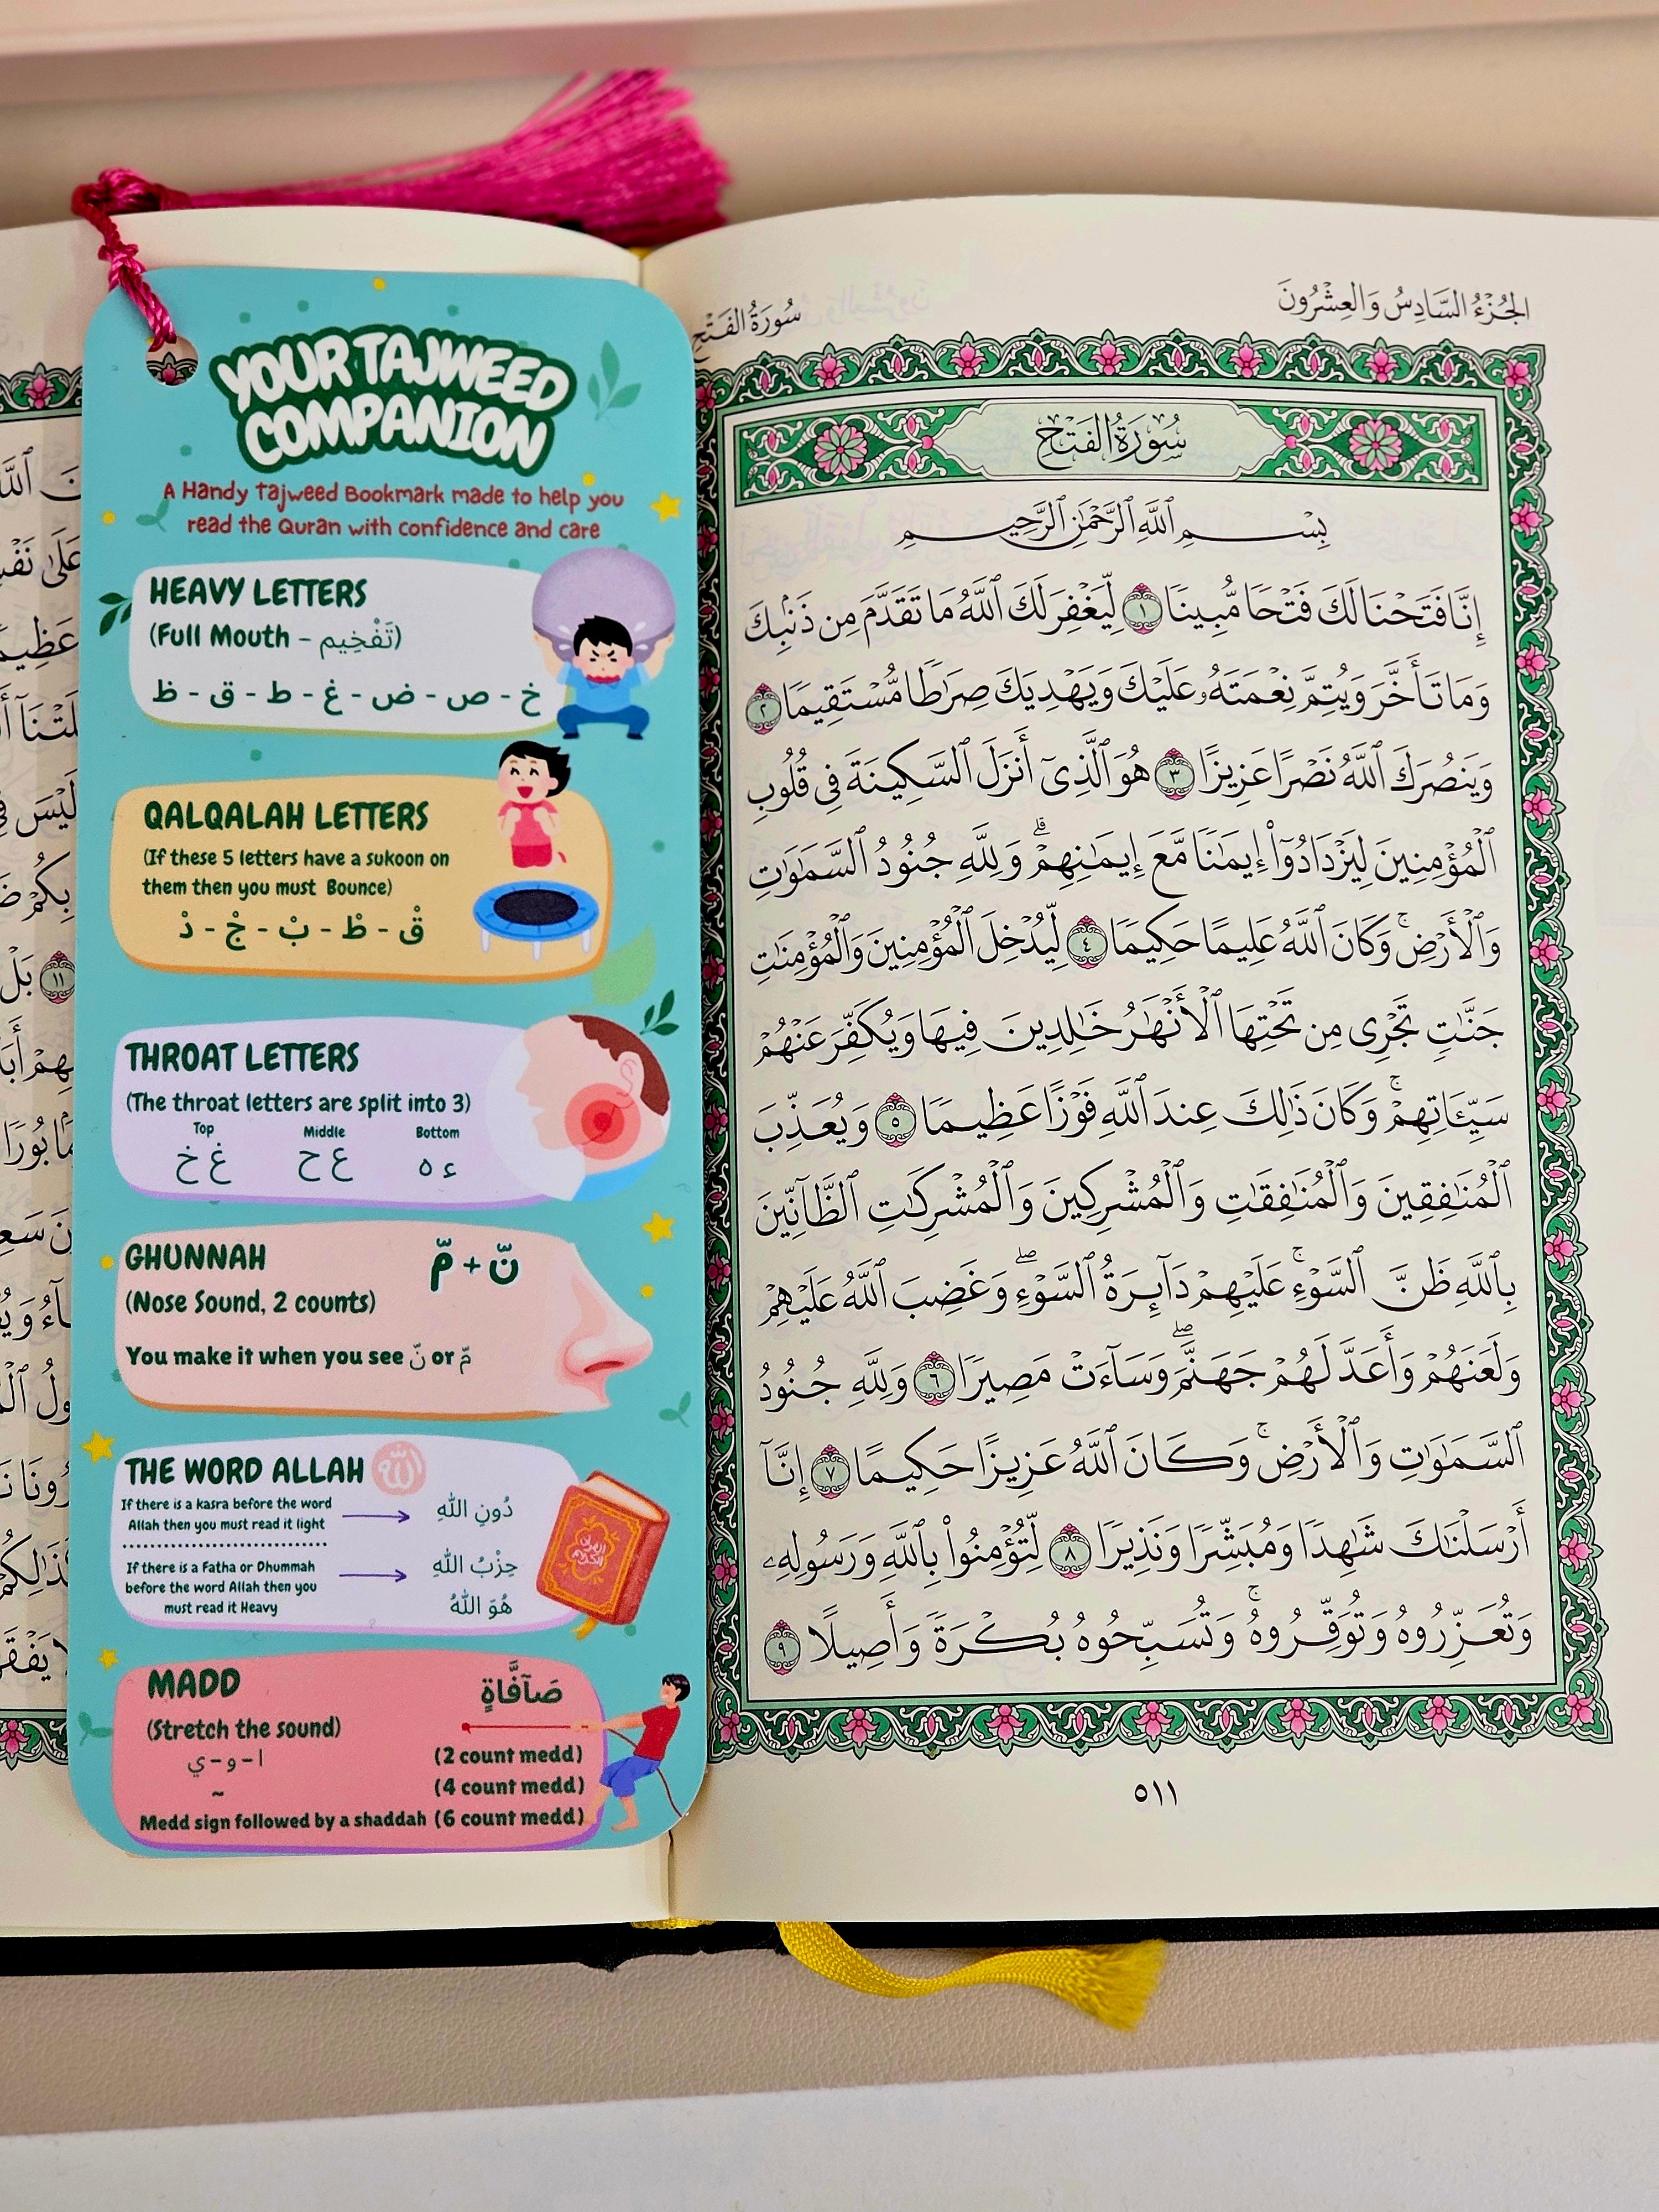 YOUR TAJWEED
COMPANION
A Handy Tajweed Bookmark made to help you
read the Quran with confidence and care
HEAVY LETTERS
(Full Mouth - تَفْخِيم)
خ - ص - ض - غ - ط - ق - ظ
QALQALAH LETTERS
(If these 5 letters have a sukoon on
them then you must Bounce)
قْ - طْ - بْ - جْ - دْ
THROAT LETTERS
(The throat letters are split into 3)
Top Middle Bottom
غ خ ع ح ء ه
GHUNNAH
نّ + مّ
(Nose Sound, 2 counts)
You make it when you see نّ or مّ
THE WORD ALLAH
اللّٰه
If there is a kasra before the word
Allah then you must read it light
دُونِ اللهِ
If there is a Fatha or Dhummah
before the word Allah then you
must read it Heavy
حِزْبُ اللهِ
هُوَ اللهُ
MADD
صَآفَّاةٍ
(Stretch the sound)
ا - و - ي (2 count medd)
~ (4 count medd)
Medd sign followed by a shaddah (6 count medd)
الجُزْءُ السَّادِسُ وَالعِشْرُونَ
سُورَةُ الفَتْحِ
سُورَةُ الفَتْحِ
بِسْمِ ٱللَّهِ ٱلرَّحْمَٰنِ ٱلرَّحِيمِ
إِنَّا فَتَحْنَا لَكَ فَتْحًا مُّبِينًا ١ لِّيَغْفِرَ لَكَ ٱللَّهُ مَا تَقَدَّمَ مِن ذَنۢبِكَ
وَمَا تَأَخَّرَ وَيُتِمَّ نِعْمَتَهُۥ عَلَيْكَ وَيَهْدِيَكَ صِرَٰطًا مُّسْتَقِيمًا ٢
وَيَنصُرَكَ ٱللَّهُ نَصْرًا عَزِيزًا ٣ هُوَ ٱلَّذِىٓ أَنزَلَ ٱلسَّكِينَةَ فِى قُلُوبِ
ٱلْمُؤْمِنِينَ لِيَزْدَادُوٓا۟ إِيمَٰنًا مَّعَ إِيمَٰنِهِمْ ۗ وَلِلَّهِ جُنُودُ ٱلسَّمَٰوَٰتِ
وَٱلْأَرْضِ ۚ وَكَانَ ٱللَّهُ عَلِيمًا حَكِيمًا ٤ لِّيُدْخِلَ ٱلْمُؤْمِنِينَ وَٱلْمُؤْمِنَٰتِ
جَنَّٰتٍ تَجْرِى مِن تَحْتِهَا ٱلْأَنْهَٰرُ خَٰلِدِينَ فِيهَا وَيُكَفِّرَ عَنْهُمْ
سَيِّـَٔاتِهِمْ ۚ وَكَانَ ذَٰلِكَ عِندَ ٱللَّهِ فَوْزًا عَظِيمًا ٥ وَيُعَذِّبَ
ٱلْمُنَٰفِقِينَ وَٱلْمُنَٰفِقَٰتِ وَٱلْمُشْرِكِينَ وَٱلْمُشْرِكَٰتِ ٱلظَّآنِّينَ
بِٱللَّهِ ظَنَّ ٱلسَّوْءِ ۚ عَلَيْهِمْ دَآئِرَةُ ٱلسَّوْءِ ۖ وَغَضِبَ ٱللَّهُ عَلَيْهِمْ
وَلَعَنَهُمْ وَأَعَدَّ لَهُمْ جَهَنَّمَ ۖ وَسَآءَتْ مَصِيرًا ٦ وَلِلَّهِ جُنُودُ
ٱلسَّمَٰوَٰتِ وَٱلْأَرْضِ ۚ وَكَانَ ٱللَّهُ عَزِيزًا حَكِيمًا ٧ إِنَّآ
أَرْسَلْنَٰكَ شَٰهِدًا وَمُبَشِّرًا وَنَذِيرًا ٨ لِّتُؤْمِنُوا۟ بِٱللَّهِ وَرَسُولِهِۦ
وَتُعَزِّرُوهُ وَتُوَقِّرُوهُ ۚ وَتُسَبِّحُوهُ بُكْرَةً وَأَصِيلًا ٩
٥١١